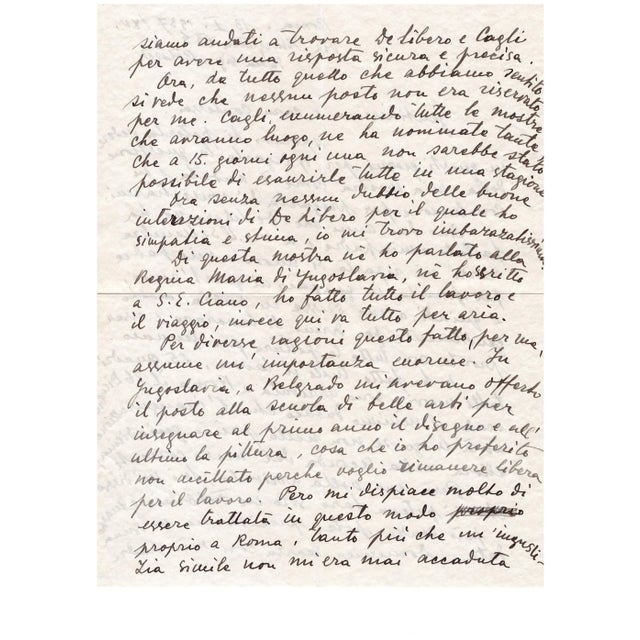 siamo andati a trovare De libero e Cagli
per avere una risposta sicura e precisa.
Ora, da tutto quello che abbiamo sentito
si vede che nessun posto non era riservato
per me. Cagli, enumerando tutte le mostre
che avranno luogo, ne ha nommate tante
che a 15. giorni ogni una non sarebbe stato
possibile di esaurirle tutte in una stagione
Ora senza nessun dubbio delle buone
intenzioni di De Libero per il quale ho
simpatia e stima, io mi trovo imbarazatissima.
Di questa mostra nè ho parlato alla
Regina Maria di Yugoslavia, nè ho scritto
a S.E. Ciano, ho fatto tutto il lavoro e
il viaggio, invece qui va tutto per aria.
Per diverse ragioni questo fatto, per me,
assume un' importanza enorme. In
Yugoslavia, a Belgrado mi avevano offerto
il posto alla scuola di belle arti per
insegnare al primo anno il disegno e all'
ultimo la pittura, cosa che io ho preferito
non accittato perche voglio rimanere libera
per il lavoro. Pero mi dispiace molto di
essere trattata in questo modo proprio
proprio a Roma, tanto più che un' ingusti-
zia simile non mi era mai accaduta